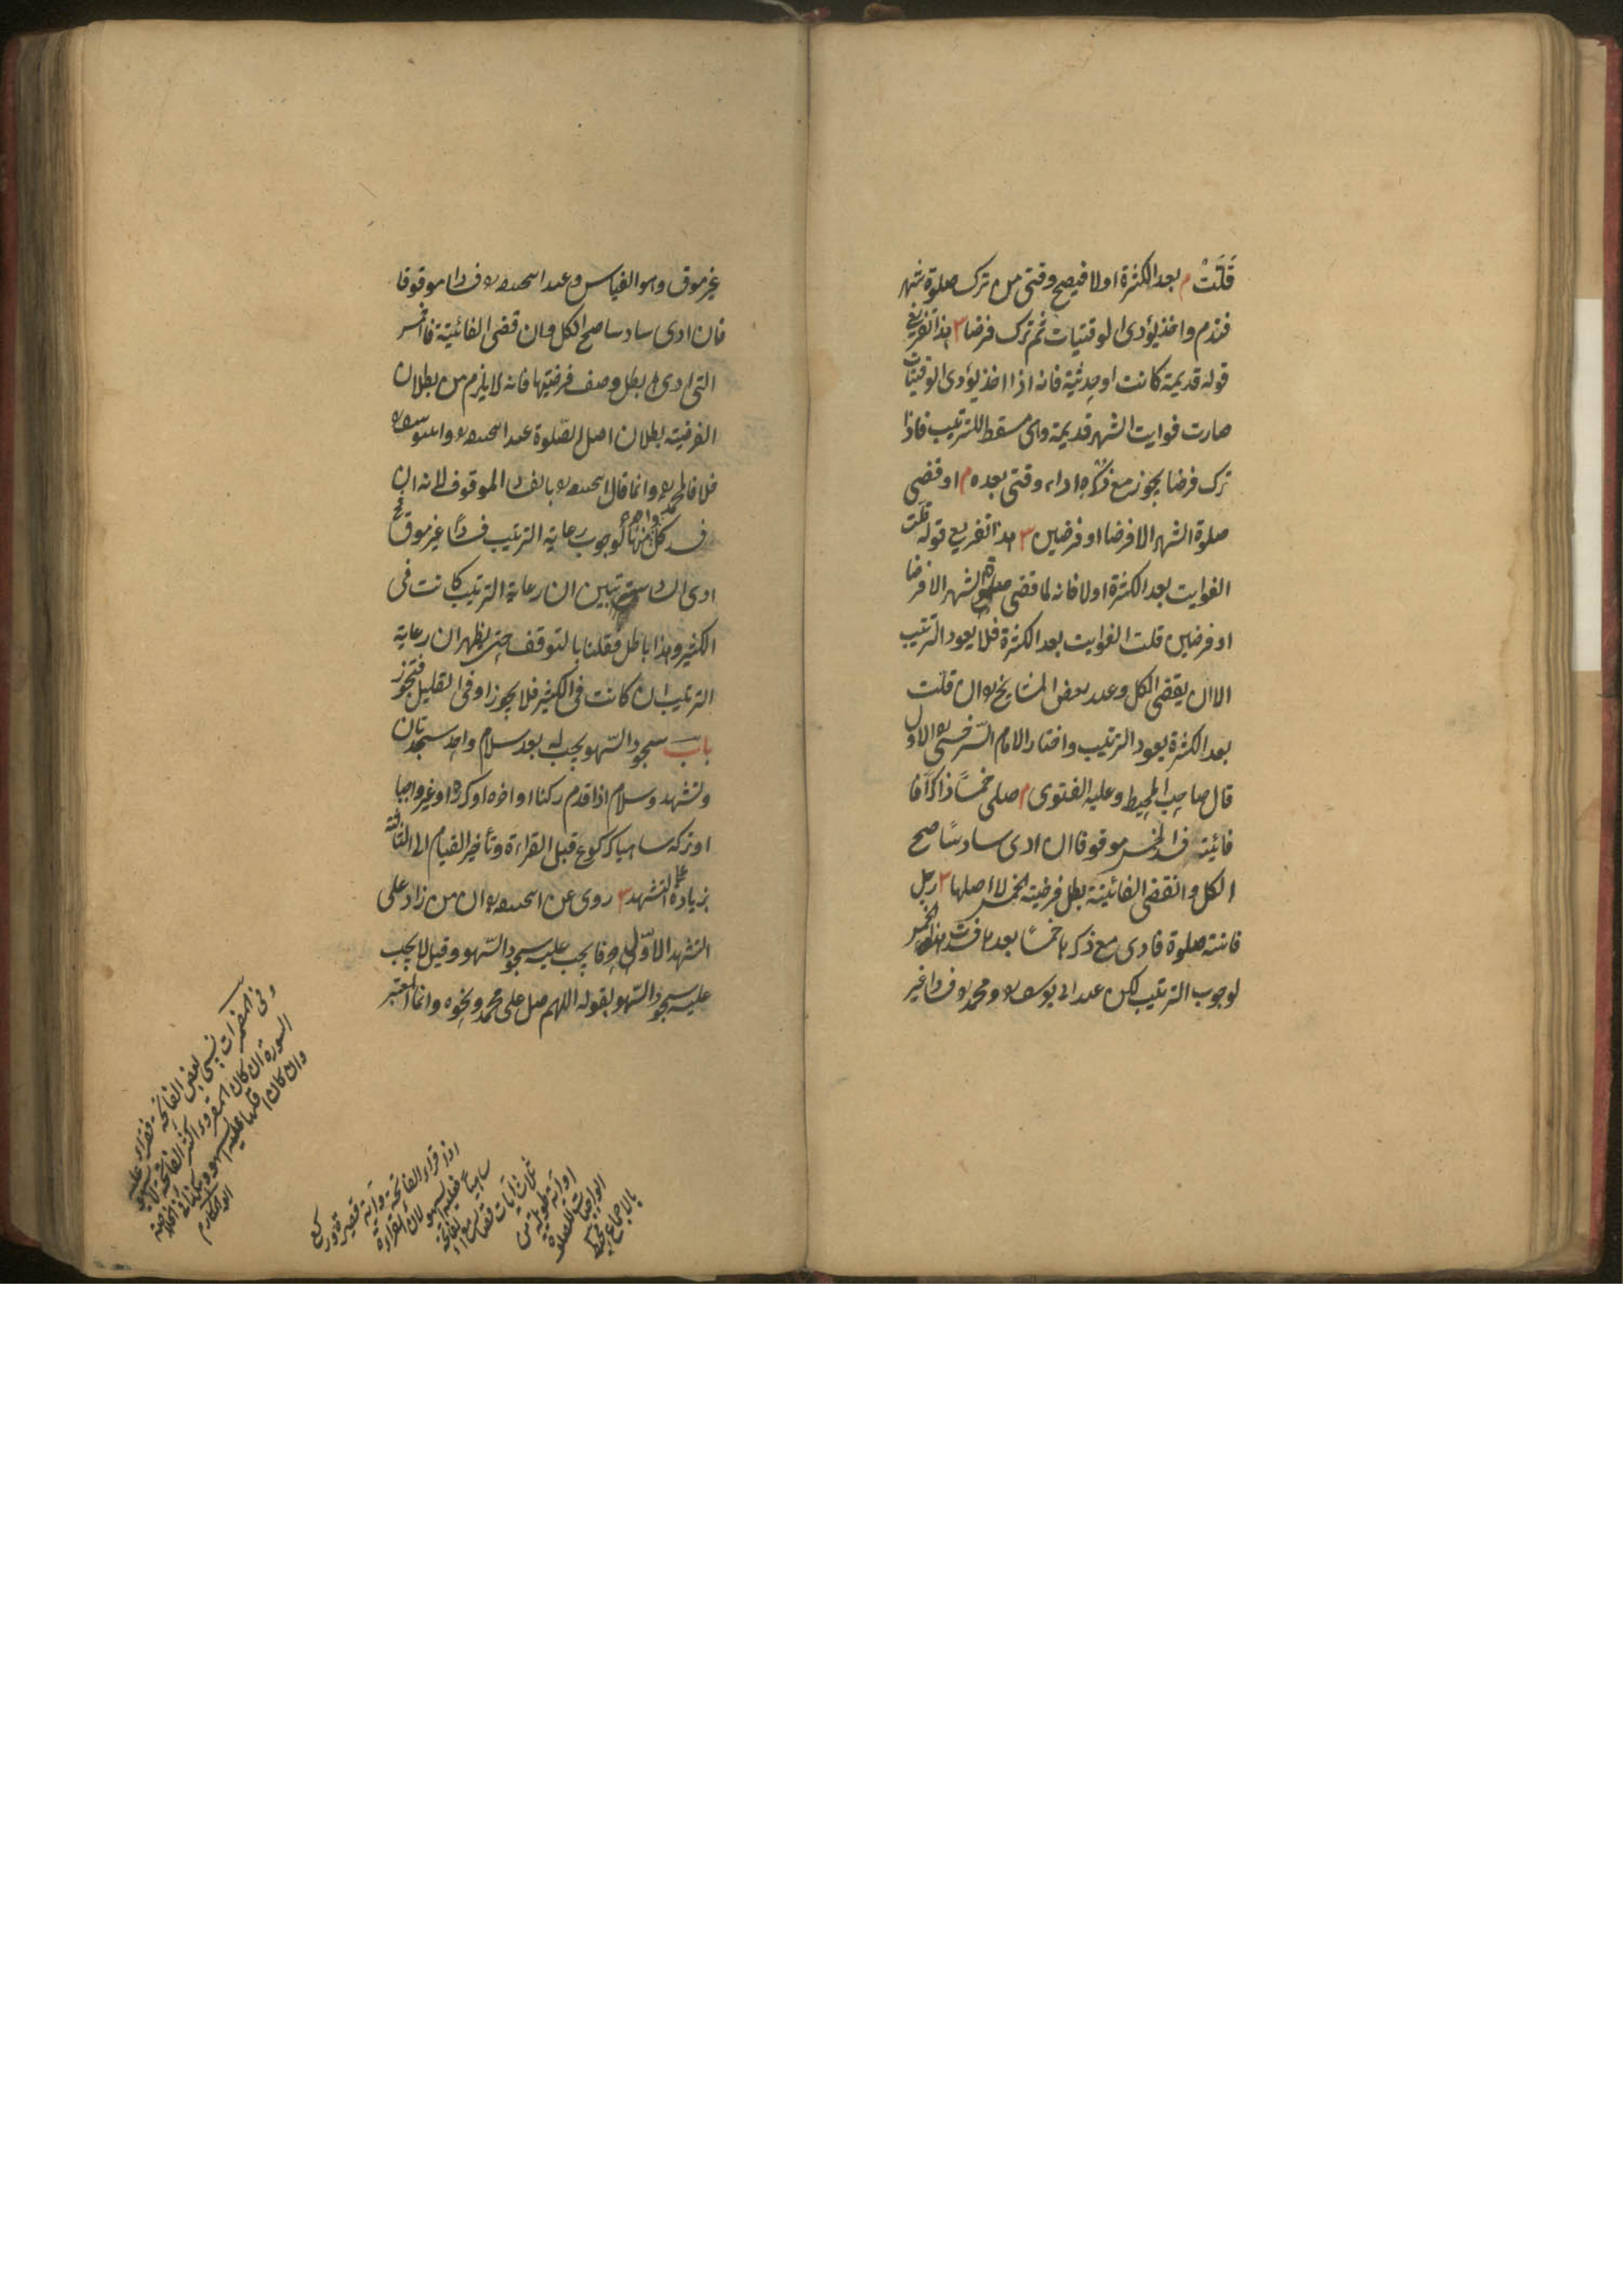 قلّت م بعد الكثرة اولا فيصح وقتي من ترك صلوة شهر
فندم واخذ يؤدى الوقتيات ثم ترك فرضا ٣ هذا تفريع
قوله قديمة كانت او حديثة فانه اذا اخذ يؤدى الوقتيات
صارت فوايت الشهر قديمة وهى مسقطة للترتيب فاذا
ترك فرضا يجوز مع ذكره اداء وقتي بعده م او قضى
صلوة الشهر الا فرضا او فرضين ٣ هذا تفريع قوله قلت
الفوايت بعد الكثرة اولا فانه لما قضى صلوة الشهر الا فرضا
او فرضين قلت الفوايت بعد الكثرة فلا يعود الترتيب
الا ان يقضى الكل وعند بعض المشايخ ان قلت
بعد الكثرة يعود الترتيب واختار الامام السرخسي الاول
قال صاحب المحيط وعليه الفتوى م صلى خمسا ذاكرا
فائتة فسد الخمس موقوفا ان ادى سادسا صح
الكل وان قضى الفائتة بطل فرضية الخمس لا اصلها ٣ رجل
فاتته صلوة فادى مع ذكرها خمسا بعدها فسدت هذه الخمس
لوجوب الترتيب لكن عند ابى يوسف ومحمد فسادا غير
غير موقوف وهو القياس وعند ابى حنيفة فسادا موقوفا
فان ادى سادسا صح الكل وان قضى الفائتة فالخمس
التى ادى بطل وصف فرضيتها فانه لا يلزم من بطلان
الفرضية بطلان اصل الصلوة عند ابى حنيفة وابى يوسف
خلافا لمحمد وانما قال ابو حنيفة بالفساد الموقوف لانه ان
فسد كل واحد منها لوجوب رعاية الترتيب فسادا غير موقوف
ادى السادسة تبين ان رعاية الترتيب كانت فى
الكثير وهذا باطل فقلنا بالتوقف حتى يظهر ان رعاية
الترتيب ان كانت فى الكثير فلا يجوز او فى القليل فتجوز
باب سجود السهو يجب له بعد سلام واحد سجدتان
وتشهد وسلام اذا قدم ركنا او اخره او كرره او غير واجبا
او تركه ساهيا كركوع قبل القراءة وتأخير القيام الى الثالثة
بزيادة على التشهد ٣ روى عن ابى حنيفة ان من زاد على
التشهد الاول حرفا يجب عليه سجود السهو وقيل لا يجب
عليه سجود السهو بقوله اللهم صل على محمد ونحوه وانما المعتبر
وفى المضمرات نسى بعض الفاتحة فقراء
السورة ان كان المقروء اكثر الفاتحة
وان كان
ابو المكارم
اذا قراء الفاتحة وآية قصيرة وركع
ساهيا فعليه السهو لان القراءة
ثلاث آيات قصار مع الفاتحة
او آية طويلة من
الواجبات للصلوة
بالاجماع